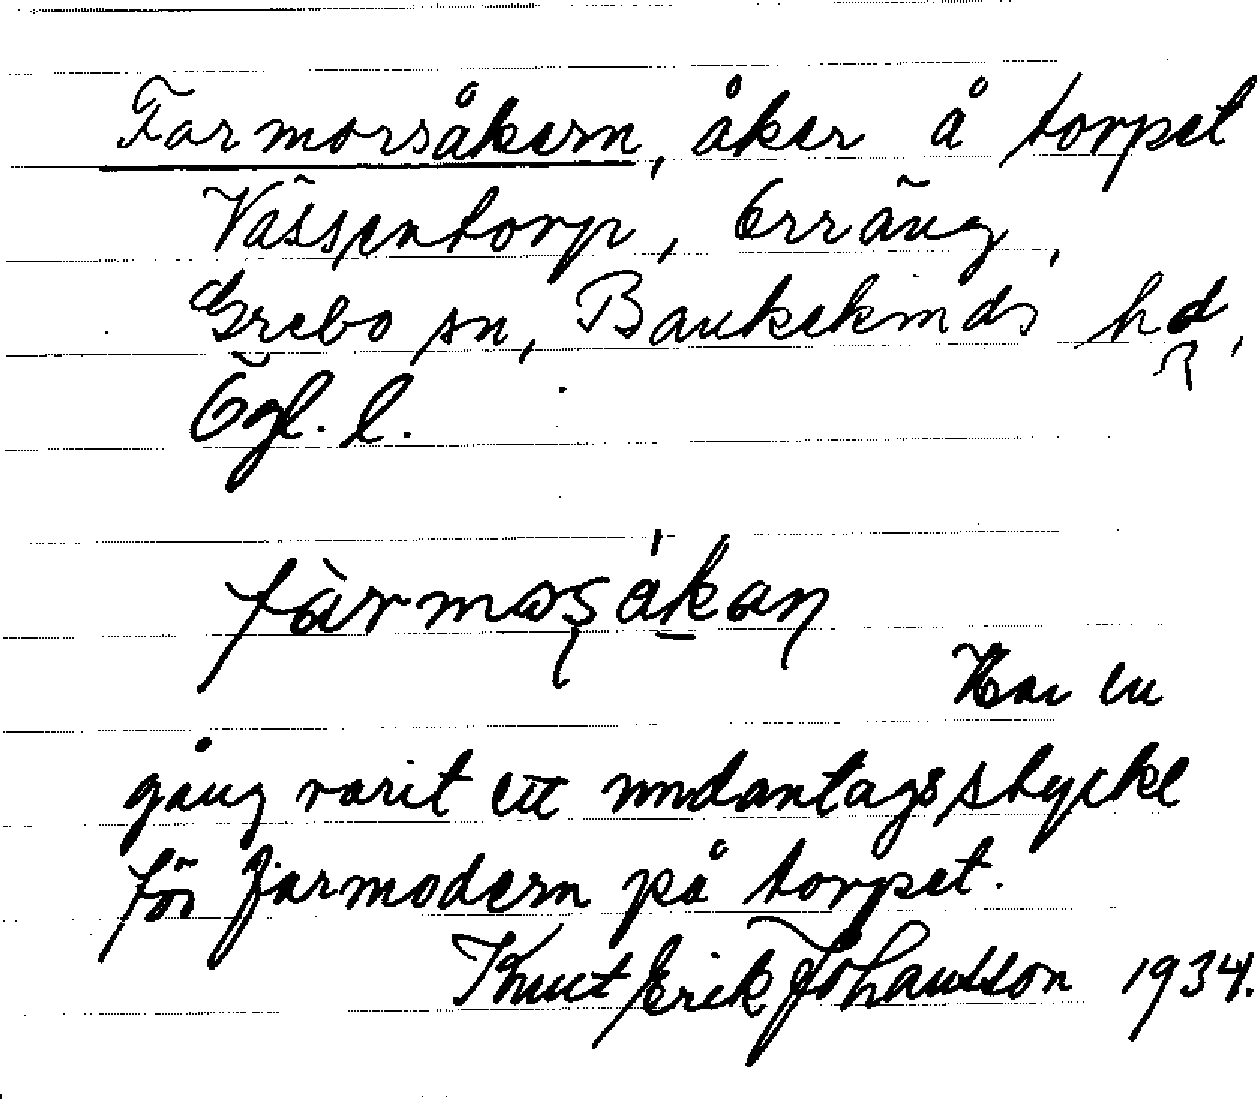 Farmorsåkern, åker å torpet
Vässentorp, Orräng,
Grebo sn, Bankekinds hd,
Ögl. l.
fàrmosåkan
Har en
gång varit ett undantagsstycke
för farmodern på torpet.
Knut Erik Johansson 1934.